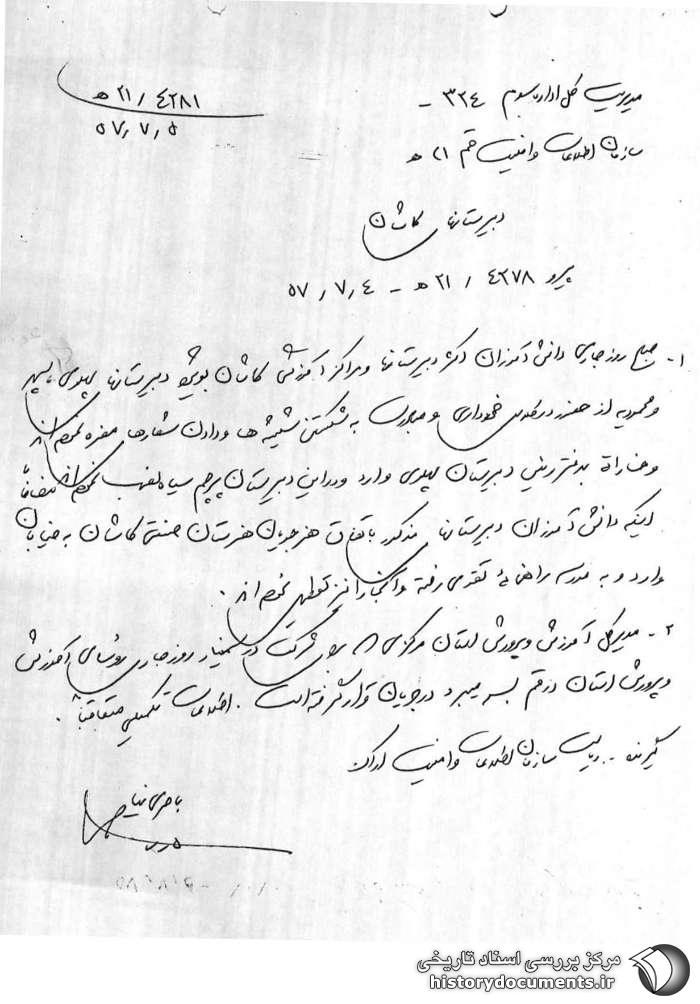 مدیریت کل اداره سوم ۳۲٤ -
۲۱/٤۲۸۱ ه
۵۷٫۷٫۵
سازمان اطلاعات و امنیت قم ۲۱ ه
دبیرستانهای کاشان
پیرو ٤۲۷۸ / ۲۱ ه - ٤٫۷٫۵۷
۱- صبح روز جاری دانش آموزان اکثر دبیرستانها و مراکز آموزشی کاشان بویژه دبیرستانهای پهلوی، سپهر
و محمودیه از حضور در کلاس خودداری و مبادرت به شکستن شیشه ها و دادن شعارهای مضره نموده اند
و دفتر رئیس دبیرستان پهلوی وارد و در این دبیرستان پرچم سیاه نصب نموده اند مضافاً
اینکه دانش آموزان دبیرستانهای مذکور باتفاق هنرجویان هنرستان صنعتی کاشان به خیابان
وارد و به مدرسه راهنمائی رفته و آنجا را نیز تعطیل نموده اند.
۲- مدیرکل آموزش و پرورش استان مرکزی که برای شرکت در سمینار روز جاری رؤسای آموزش
و پرورش استان در قم بسر میبرد در جریان قرار گرفته است. اطلاعات تکمیلی متعاقباً.
گیرنده - ریاست سازمان اطلاعات و امنیت اراک
مرکز بررسی اسناد تاریخی
historydocuments.ir